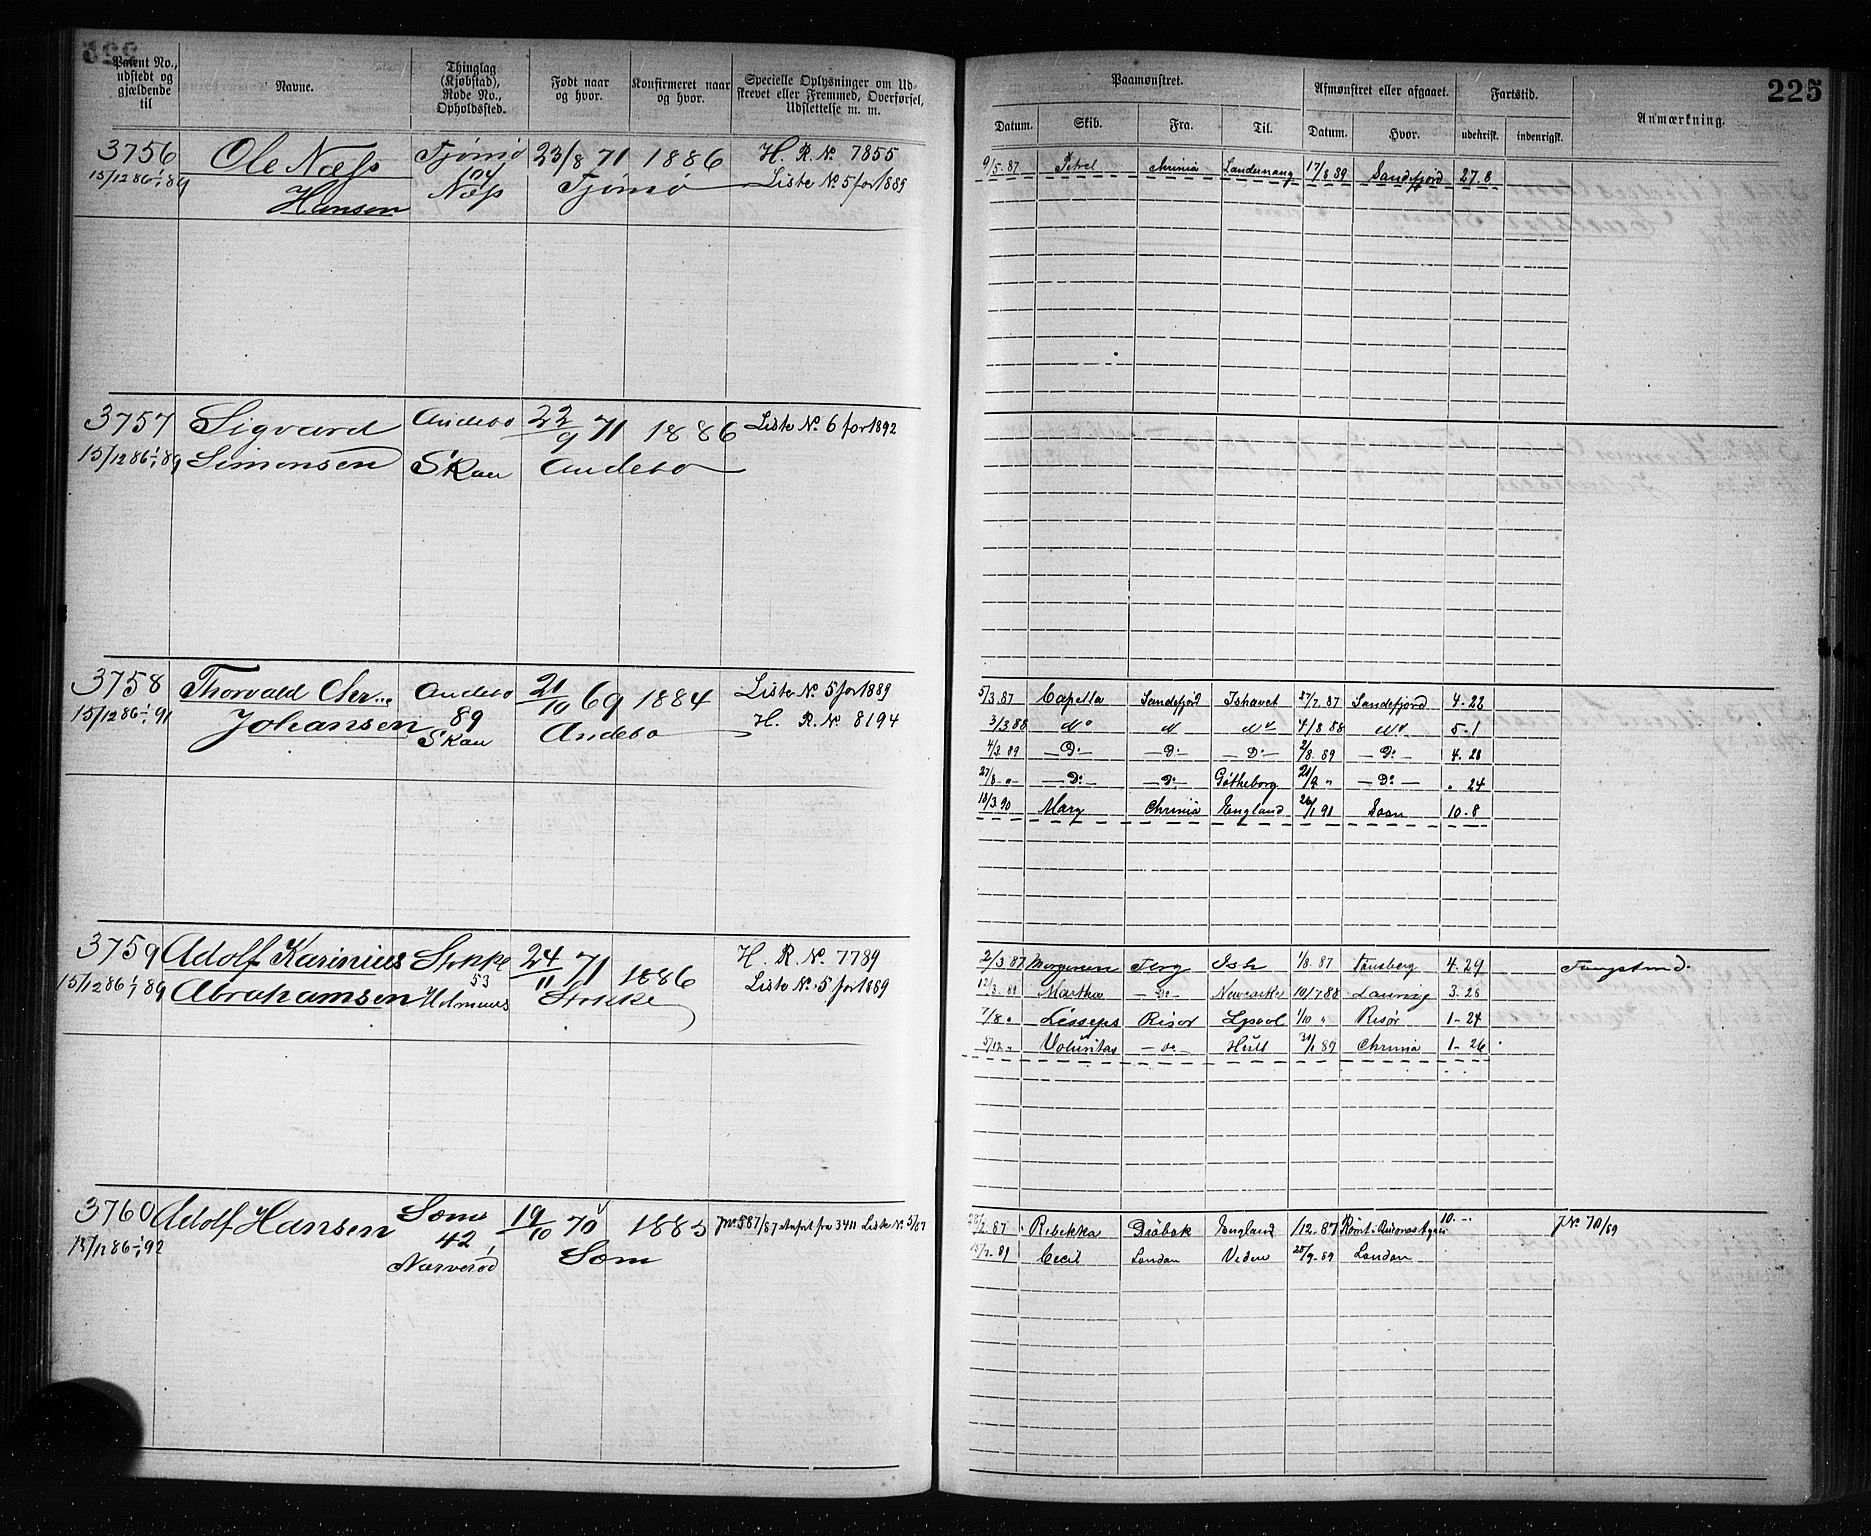 225
Patent No., udstedt og gjældende til
Navne.
Thinglag (Kjøbstad), Rode No., Opholdssted.
Født naar og hvor.
Konfirmeret naar og hvor.
Specielle Oplysninger om Udskrevet eller Fremmed, Overførsel, Udslettelse m. m.
Paamønstret.
Afmønstret eller afgaaet.
Fartstid.
Anmærkning.
Datum. Skib. Fra. Til. Datum. Hvor. udenrigsk. indenrigsk.
3756 Ole Næss Tjømø 23/8 71 1886 H. R. No 7855
15/12 86 1/1 89 Hansen 104 Næss Tjømø Liste No 5 for 1889
9/5 87 Petrel Chrinia 17/8 89 Sandefjord 27.8
3757 Sigvard Andebo 22/9 71 1886 Liste No 6 for 1892
15/12 86 1/1 89 Simonsen Skau Andebo
3758 Thorvald Chr. Andebo 21/10 69 1884 Liste No 5 for 1889
15/12 86 1/1 91 Johansen 89 Skau Andebo H. R. No 8194
5/3 87 Capella Sandefjord Ishavet 27/7 87 Sandefjord 4-22
3/3 88 Do Do Do 4/8 88 Do 5-1
4/3 89 Do Do Do 2/8 89 Do
27/8 " Do Do Gøtheborg Do " 24
18/3 90 Mary Chrinia England 91 10-8
3759 Adolf Karinius Stokke 24/11 71 1886 H. R. No 7789
15/12 86 1/1 89 Abrahamsen 53 Stokke Liste No 5 for 1889
2/3 87 Morgenen Tbrg Ish 1/8 87 Tønsberg 4.29
12/3 88 Martha Do Newcastle 10/7 88 Laurvig
7/8 " Lesseps Risør Lpool 1/10 " Risør 1-24
5/12 " Voluntas Do Hull 89 Chrinia 1-26
3760 Adolf Hansen Sem 19/10 70 1885 Jno 587/87 Anført fra 3411 Liste No 5/87
15/12 86 1/1 92 42 Narverød Sem
87 Rebekka Drøbak England 1/12 87 10.- JNo 70/89
Cecil London 89 London